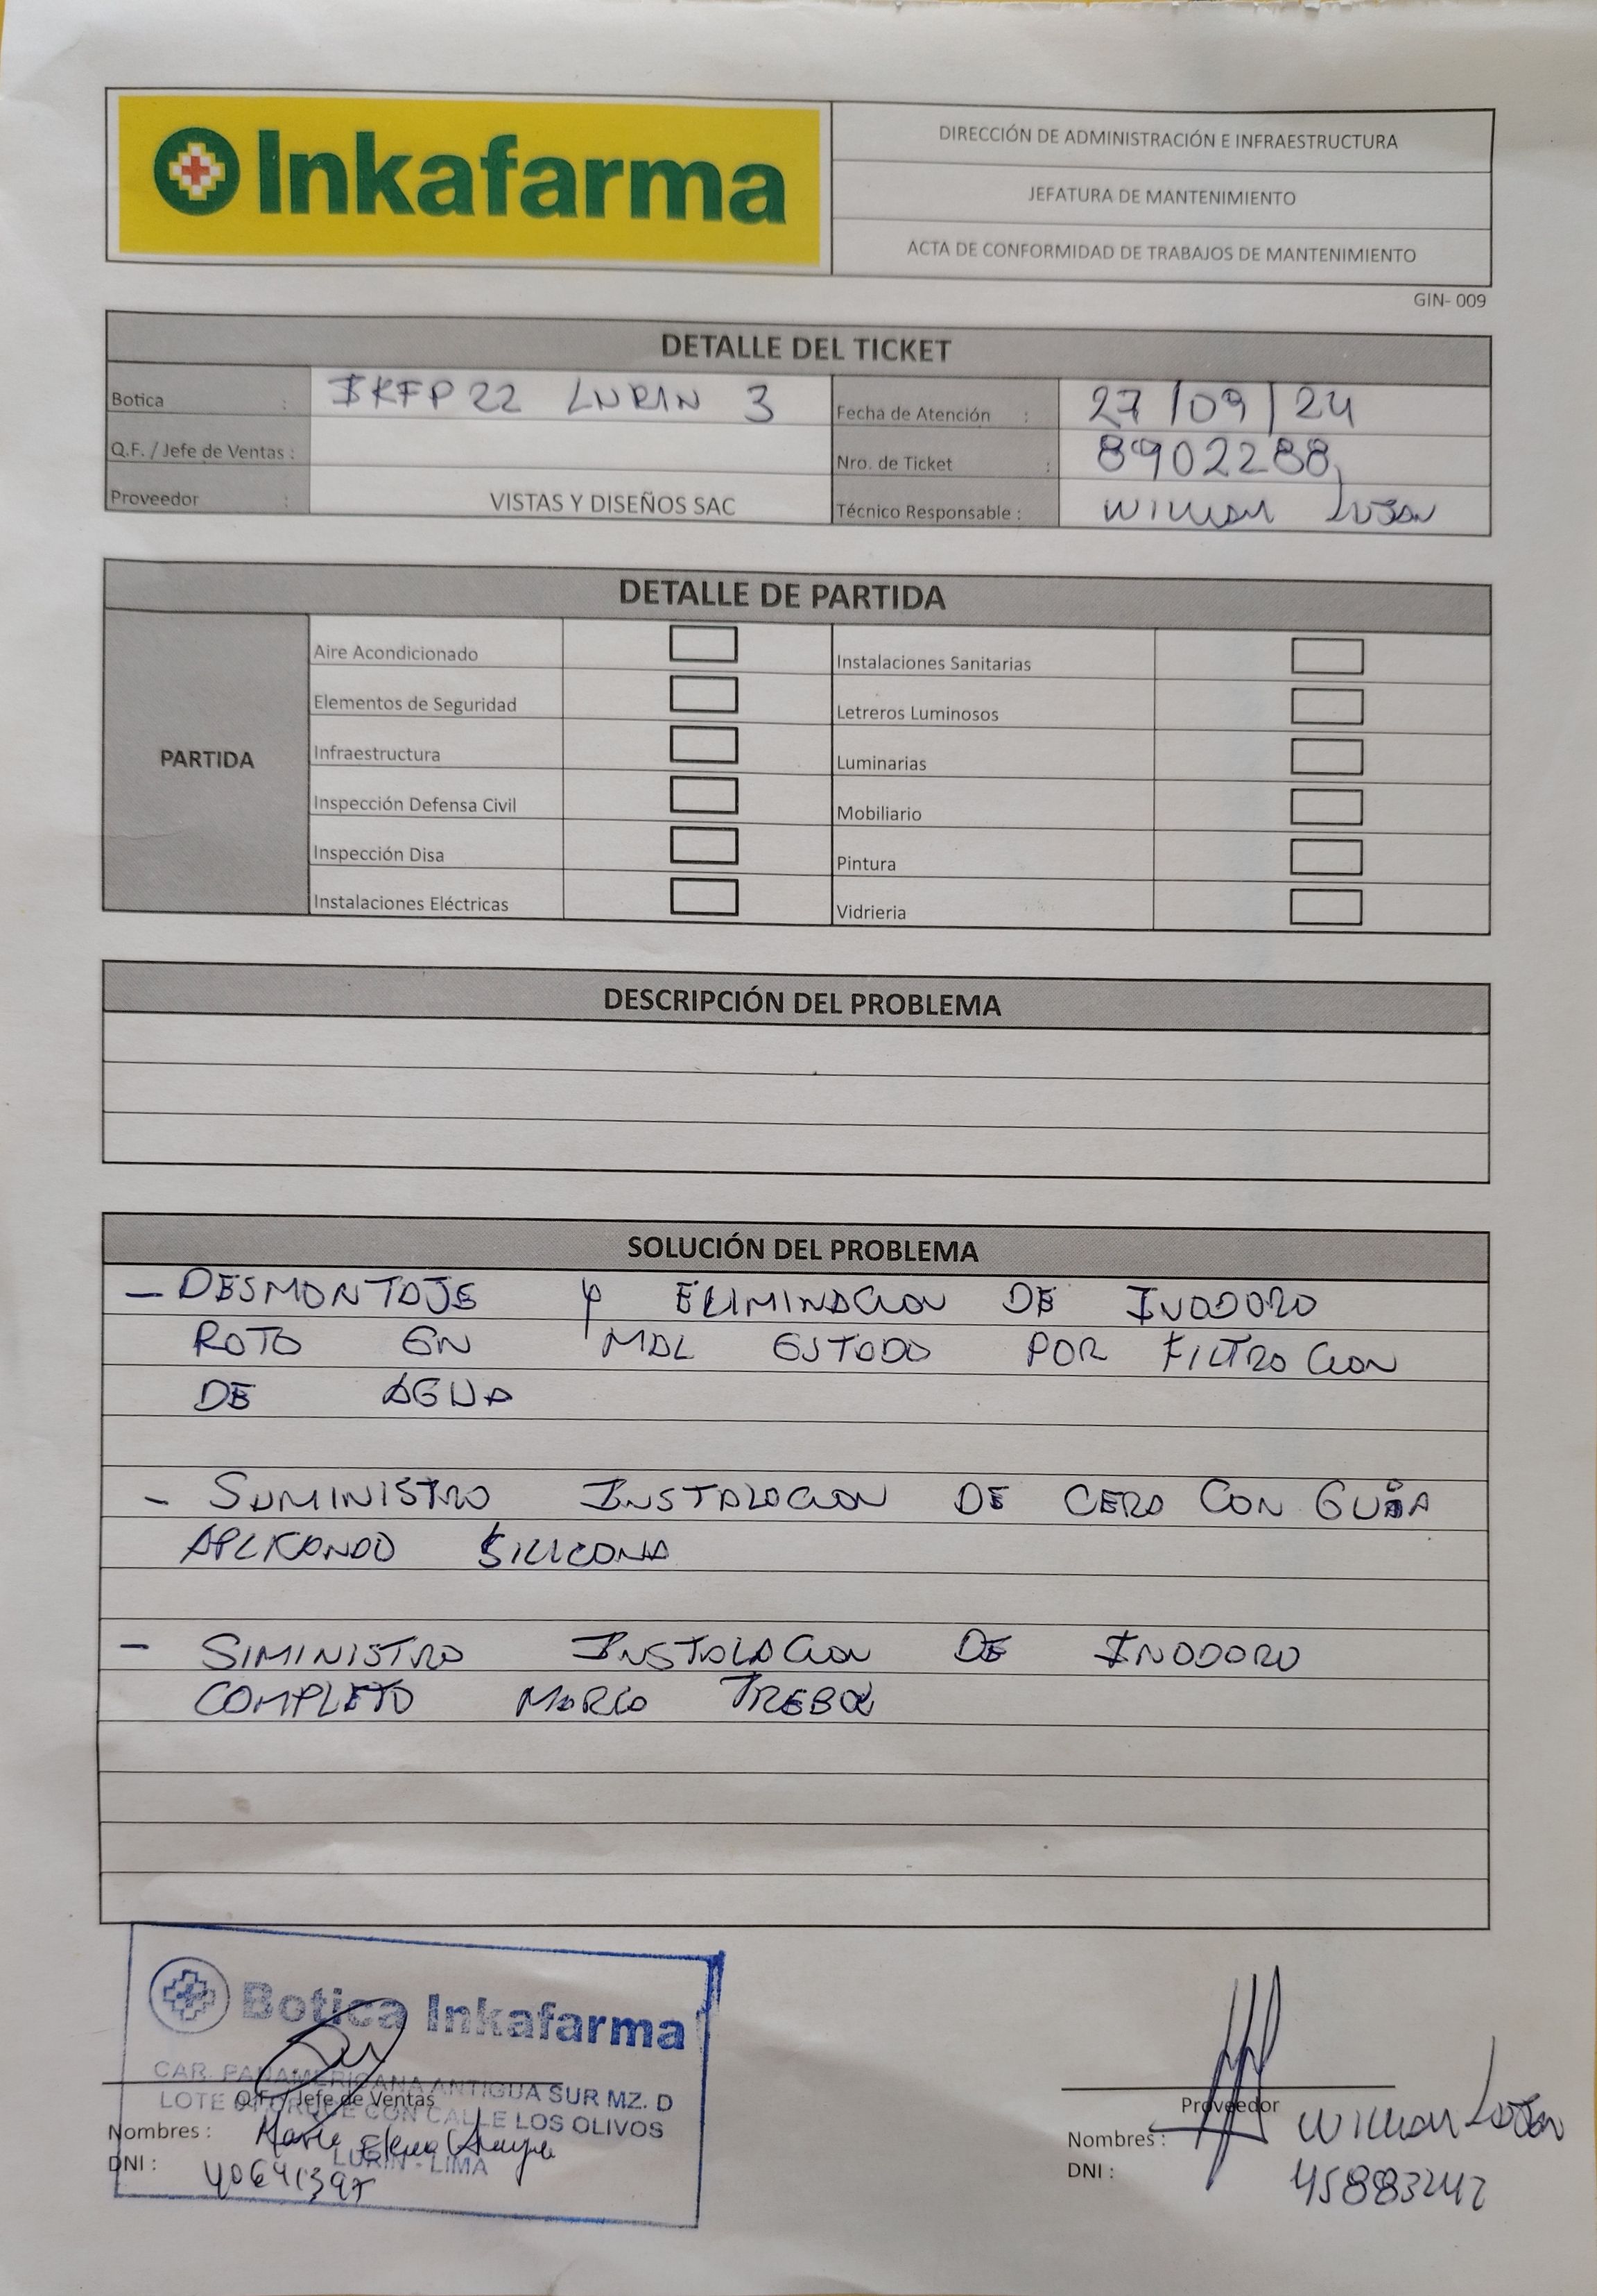 Inkafarma
DIRECCIÓN DE ADMINISTRACIÓN E INFRAESTRUCTURA
JEFATURA DE MANTENIMIENTO
ACTA DE CONFORMIDAD DE TRABAJOS DE MANTENIMIENTO
GIN- 009
DETALLE DEL TICKET
Botica : IKFP22 LURIN 3 Fecha de Atención : 27/09/24
Q.F. / Jefe de Ventas : Nro. de Ticket : 8902288
Proveedor : VISTAS Y DISEÑOS SAC Técnico Responsable : WILLIAM LUJAN
DETALLE DE PARTIDA
PARTIDA
Aire Acondicionado Instalaciones Sanitarias
Elementos de Seguridad Letreros Luminosos
Infraestructura Luminarias
Inspección Defensa Civil Mobiliario
Inspección Disa Pintura
Instalaciones Eléctricas Vidrieria
DESCRIPCIÓN DEL PROBLEMA
SOLUCIÓN DEL PROBLEMA
- DESMONTAJE Y ELIMINACION DE INODORO
ROTO EN MAL ESTADO POR FILTRACION
DE AGUA
- SUMINISTRO INSTALACION DE CERA CON GUIA
APLICANDO SILICONA
- SIMINISTRO INSTALACION DE INODORO
COMPLETO MARCA TREBOL
Botica Inkafarma
CAR. PANAMERICANA ANTIGUA SUR MZ. D
LOTE CON CALLE LOS OLIVOS
LURIN - LIMA
Q.F. / Jefe de Ventas
Nombres : Maria Elena
DNI : 40641397
Proveedor
Nombres : WILLIAM LUJAN
DNI : 45883242